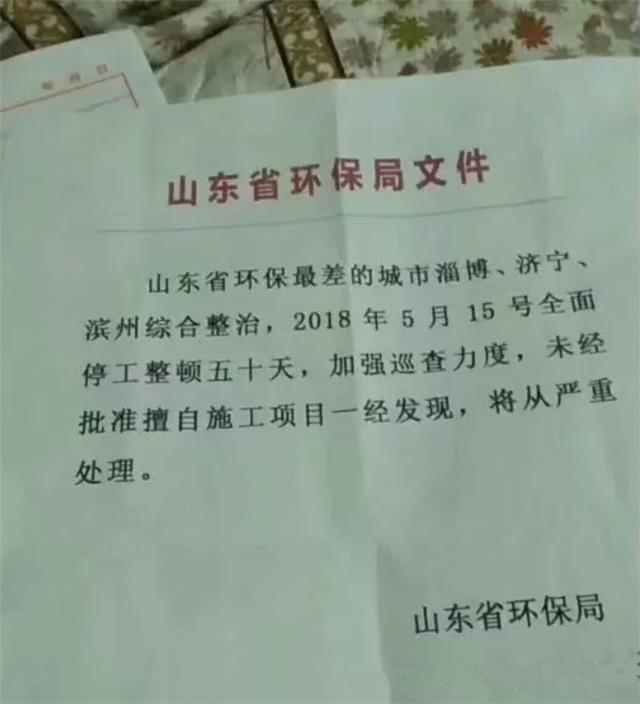 年 月 日
山东省环保局文件
山东省环保最差的城市淄博、济宁、
滨州综合整治，2018 年 5 月 15 号全面
停工整顿五十天，加强巡查力度，未经
批准擅自施工项目一经发现，将从严重
处理。
山东省环保局